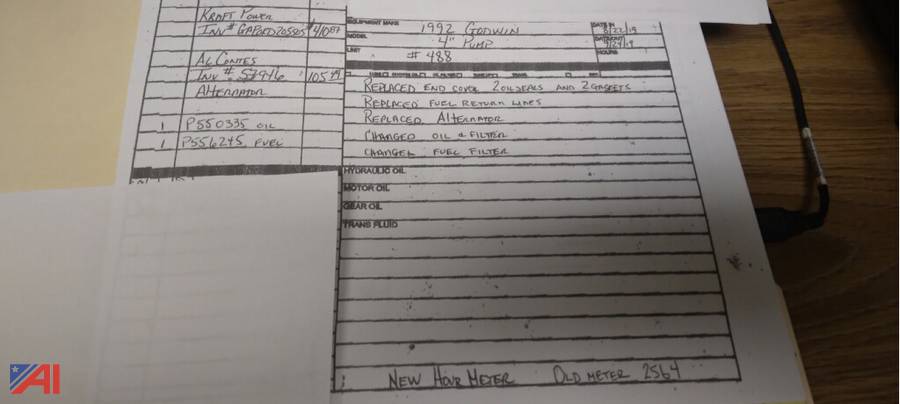 KRAFT POWER
INV# 410
EQUIPMENT MAKE 1992 GODWIN
MODEL 4" PUMP
UNIT # 488
DATE IN 8/22/19
DATE OUT 9/24/19
HOURS
AL CONTES
INV # 105
ALTERNATOR
1 P550335 OIL
1 P556245 FUEL
REPLACED END COVER 2 OIL SEALS AND 2 GASKETS
REPLACED FUEL RETURN LINES
REPLACED ALTERNATOR
CHANGED OIL & FILTER
CHANGED FUEL FILTER
HYDRAULIC OIL
MOTOR OIL
GEAR OIL
TRANS FLUID
NEW HOUR METER OLD METER 2564
AI